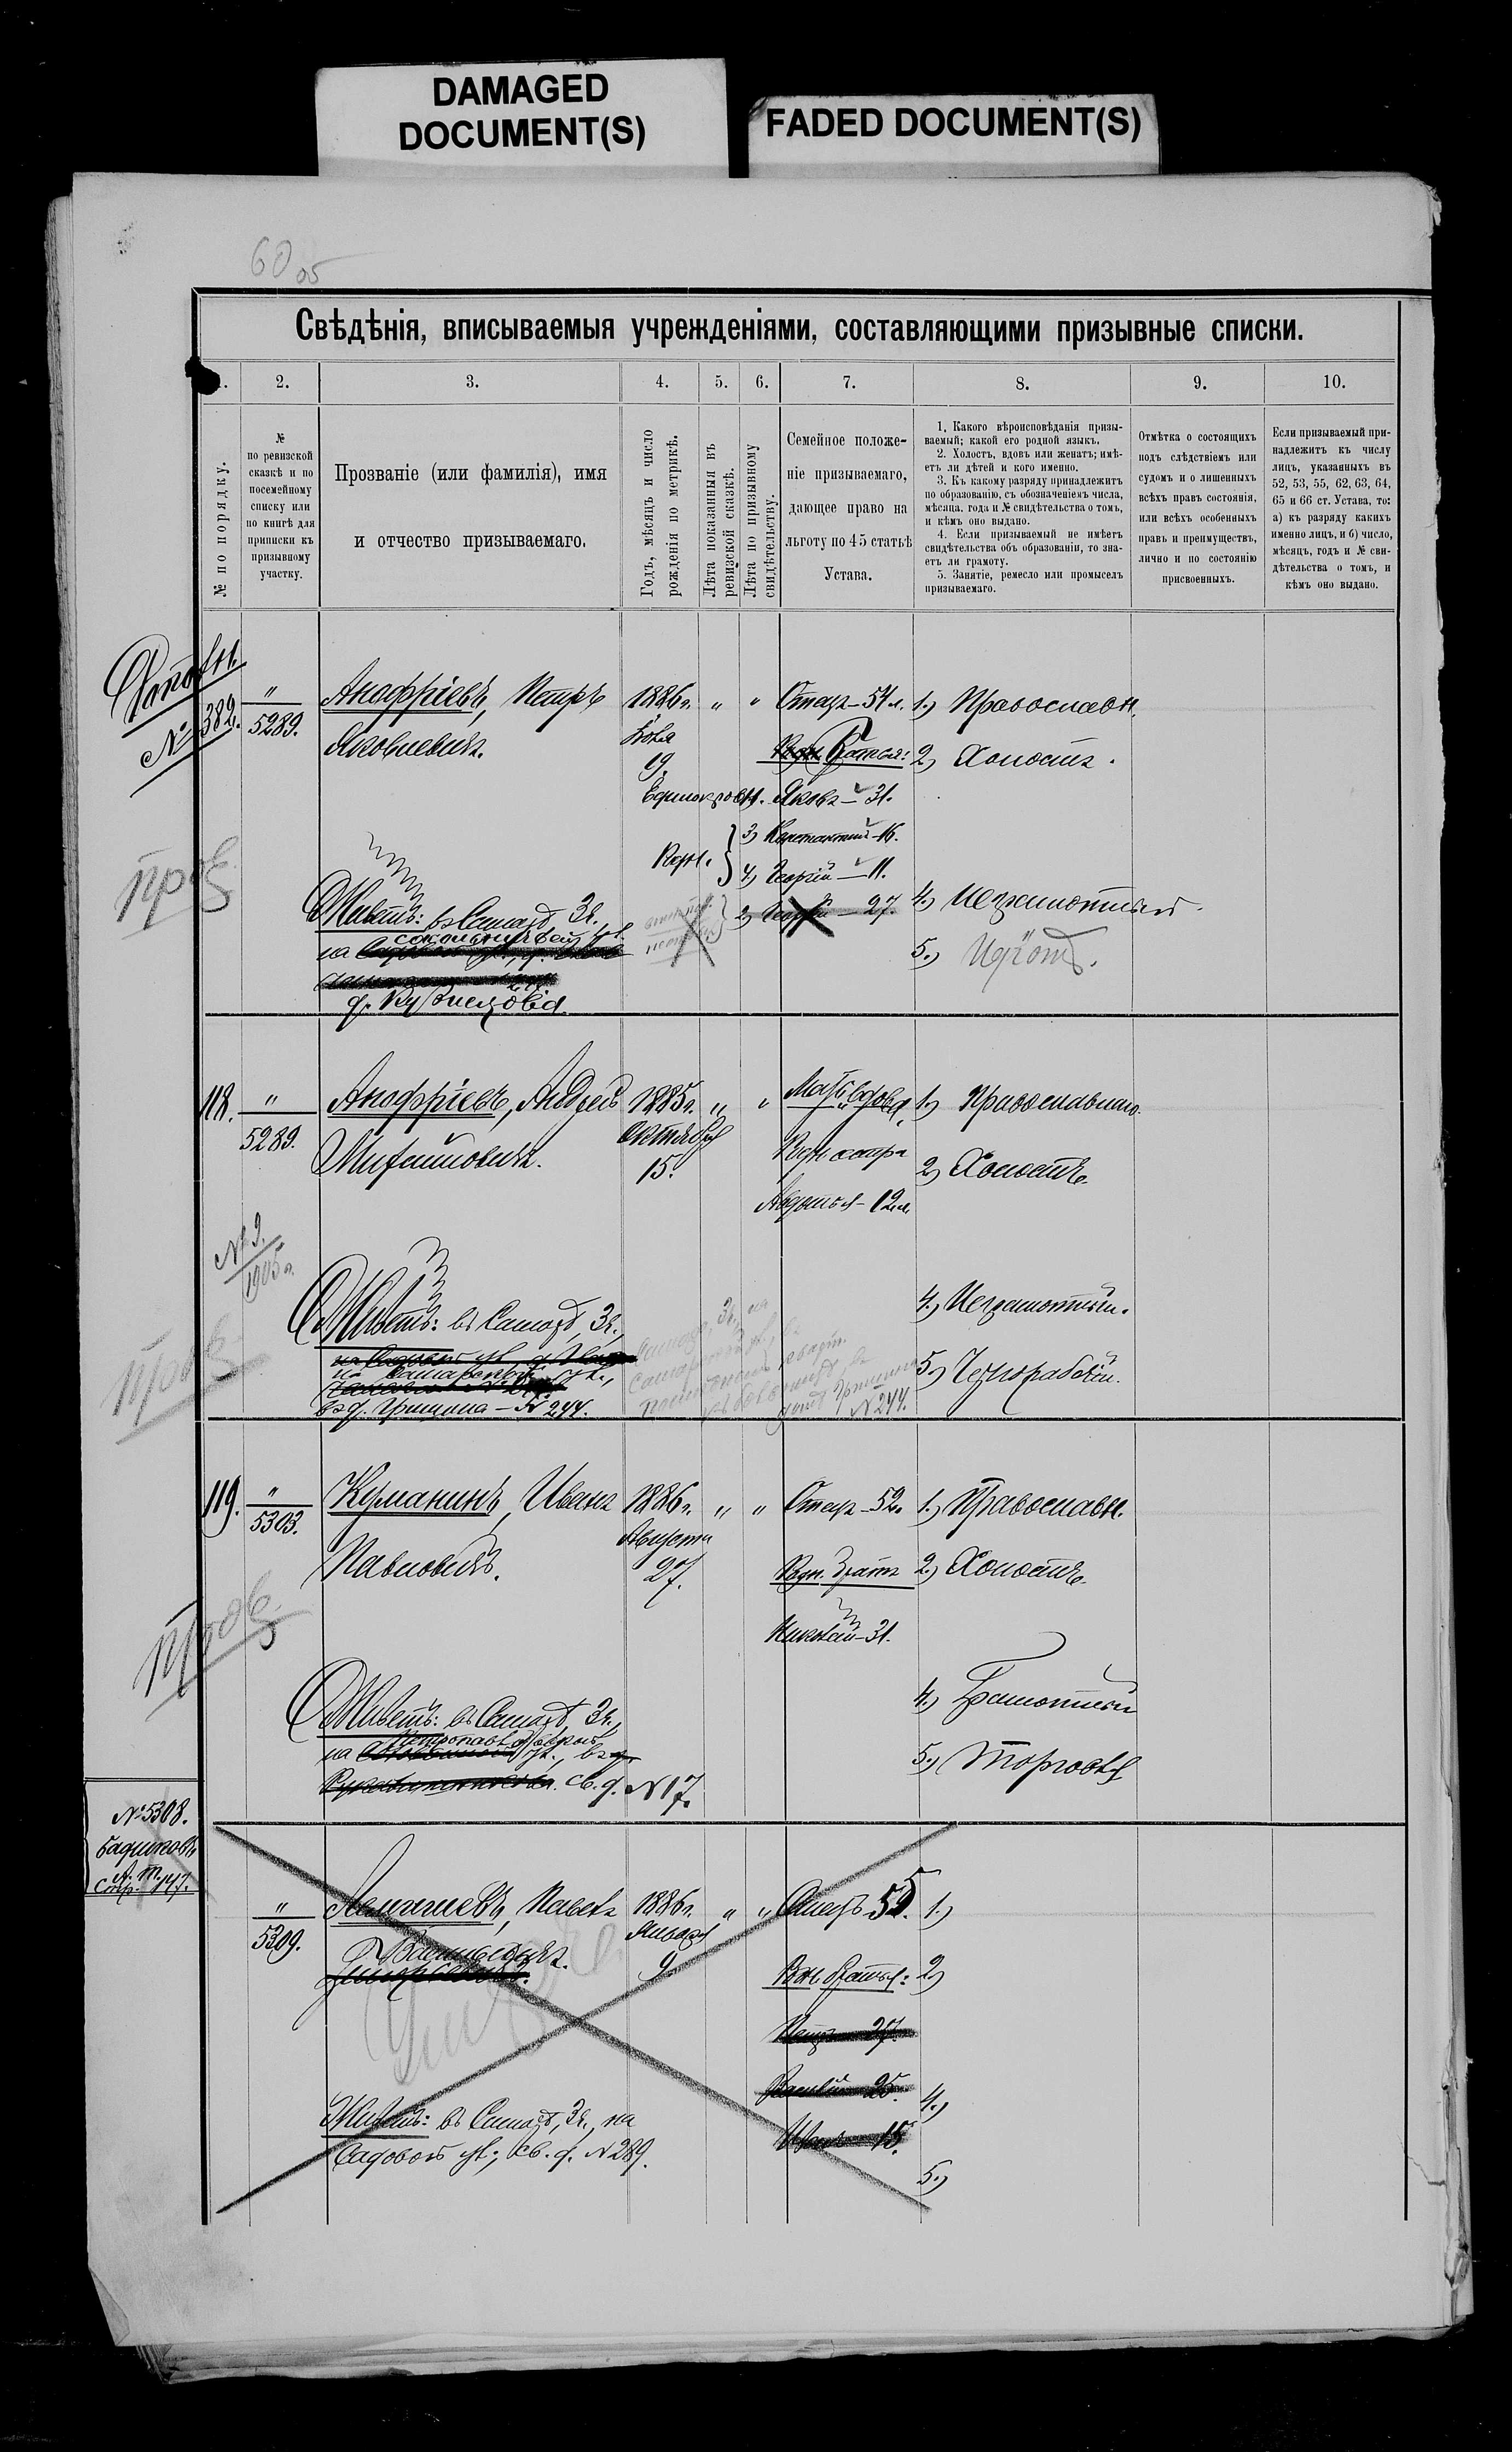 DAMAGED
DOCUMENT(S)
FADED DOCUMENT(S)
60 об
Свѣдѣнія, вписываемыя учрежденіями, составляющими призывные списки.
2.
3.
4.
5.
6.
7.
8.
9.
10.
№ по порядку.
№
по ревизской
сказкѣ и по
посемейному
списку или
по книгѣ для
приписки къ
призывному
участку.
Прозваніе (или фамилія), имя
и отчество призываемаго.
Годъ, мѣсяцъ и число
рожденія по метрикѣ.
Лѣта показанныя въ
ревизской сказкѣ.
Лѣта по призывному
свидѣтельству.
Семейное положе-
ніе призываемаго,
дающее право на
льготу по 45 статьѣ
Устава.
1. Какого вѣроисповѣданія призы-
ваемый; какой его родной языкъ.
2. Холостъ, вдовъ или женатъ; имѣ-
етъ ли дѣтей и кого именно.
3. Къ какому разряду принадлежитъ
по образованію, съ обозначеніемъ числа,
мѣсяца, года и № свидѣтельства о томъ,
и кѣмъ оно выдано.
4. Если призываемый не имѣетъ
свидѣтельства объ образованіи, то зна-
етъ ли грамоту.
5. Занятіе, ремесло или промыселъ
призываемаго.
Отмѣтка о состоящихъ
подъ слѣдствіемъ или
судомъ и о лишенныхъ
всѣхъ правъ состоянія,
или всѣхъ особенныхъ
правъ и преимуществъ,
лично и по состоянію
присвоенныхъ.
Если призываемый при-
надлежитъ къ числу
лицъ, указанныхъ въ
52, 53, 55, 62, 63, 64,
65 и 66 ст. Устава, то:
а) къ разряду какихъ
именно лицъ, и б) число,
мѣсяцъ, годъ и № сви-
дѣтельства о томъ, и
кѣмъ оно выдано.
№ 382.
"
5289.
Анофріевъ, Петръ
Яковлевичъ.
1886 г.
19.
"
"
Отецъ – 54 л.
Родн. Братья:
Единокровн. Яковъ – 31.
Родн. 3) Константинъ – 16.
4) Георгій – 11.
2) – 27.
1.) Православн.
2) Холостъ.
4.) Неграмотный.
5.)
пров.
Живетъ: въ Самарѣ 3 ч.,
на
д. Кузнецова.
118.
"
5289.
Анофріевъ, Андрей
Михайловичъ.
1885 г.
Октября
15.
"
"
Мать вдова,
Родн сестра
Авдотья – 12 л.
1.) Православнаго
2) Холостъ.
4.) Неграмотный.
5.) Чернорабочій.
№ 9.
1905 г.
пров.
Живетъ: въ Самарѣ, 3 ч.,
на Самарской ул.,
въ д. Гришина – № 244.
№ 244.
119.
"
5303.
Курманинъ, Иванъ
Павловичъ.
1886 г.
Августа
27.
"
"
Отецъ – 52.
Родн. братъ
Николай – 31.
1.) Православн.
2.) Холостъ.
4.) Грамотный
5.) Торговля
пров.
Живетъ: въ Самарѣ, 3 ч.,
на ул., въ
св. д. № 17.
№ 5308.
стр. 147.
"
5309.
Павелъ
Васильевичъ.
1886 г.
Января
9.
"
"
Отецъ 55.
Родн. братья:
Петръ – 27.
Василій – 25.
15.
1.)
2)
4.)
5.)
Живетъ: въ Самарѣ, 3 ч., на
Садовой ул., св. д. № 289.